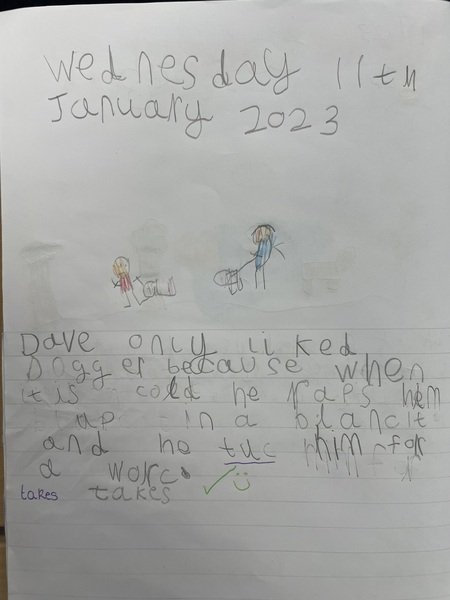 Wednesday 11th
January 2023
Dave only licked
Dogger because when
it is cold he raps him
up in a blancit
and he tuc him for
a worc.
takes takes